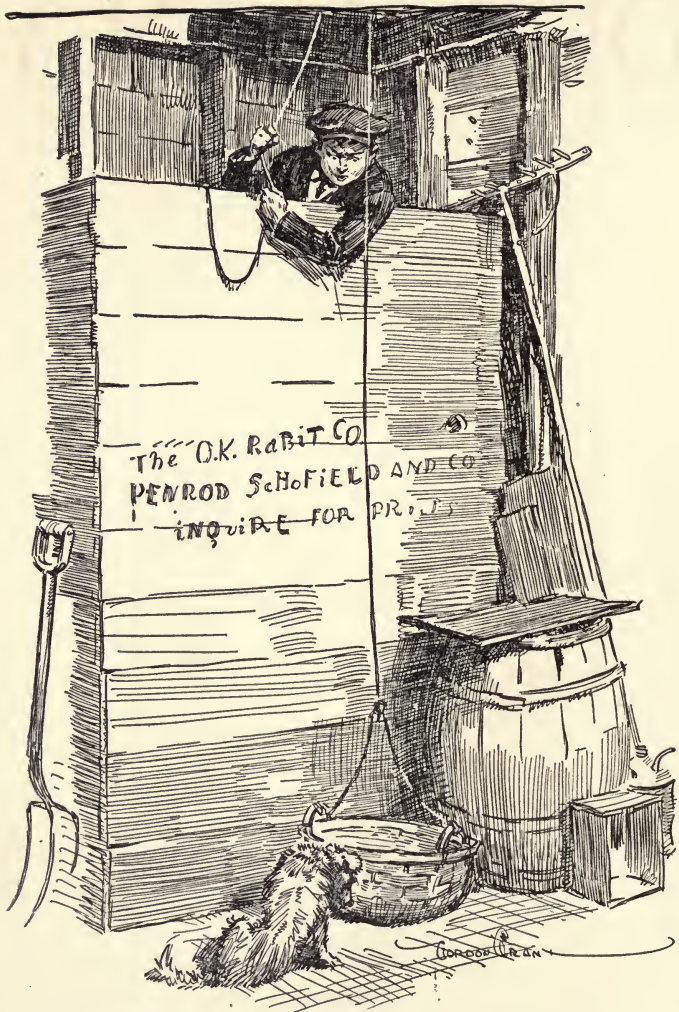 The O.K. RaBiT CO
PENROD ScHoFiELD AND CO
iNQuiRE FOR PRiCES
GORDON GRANT